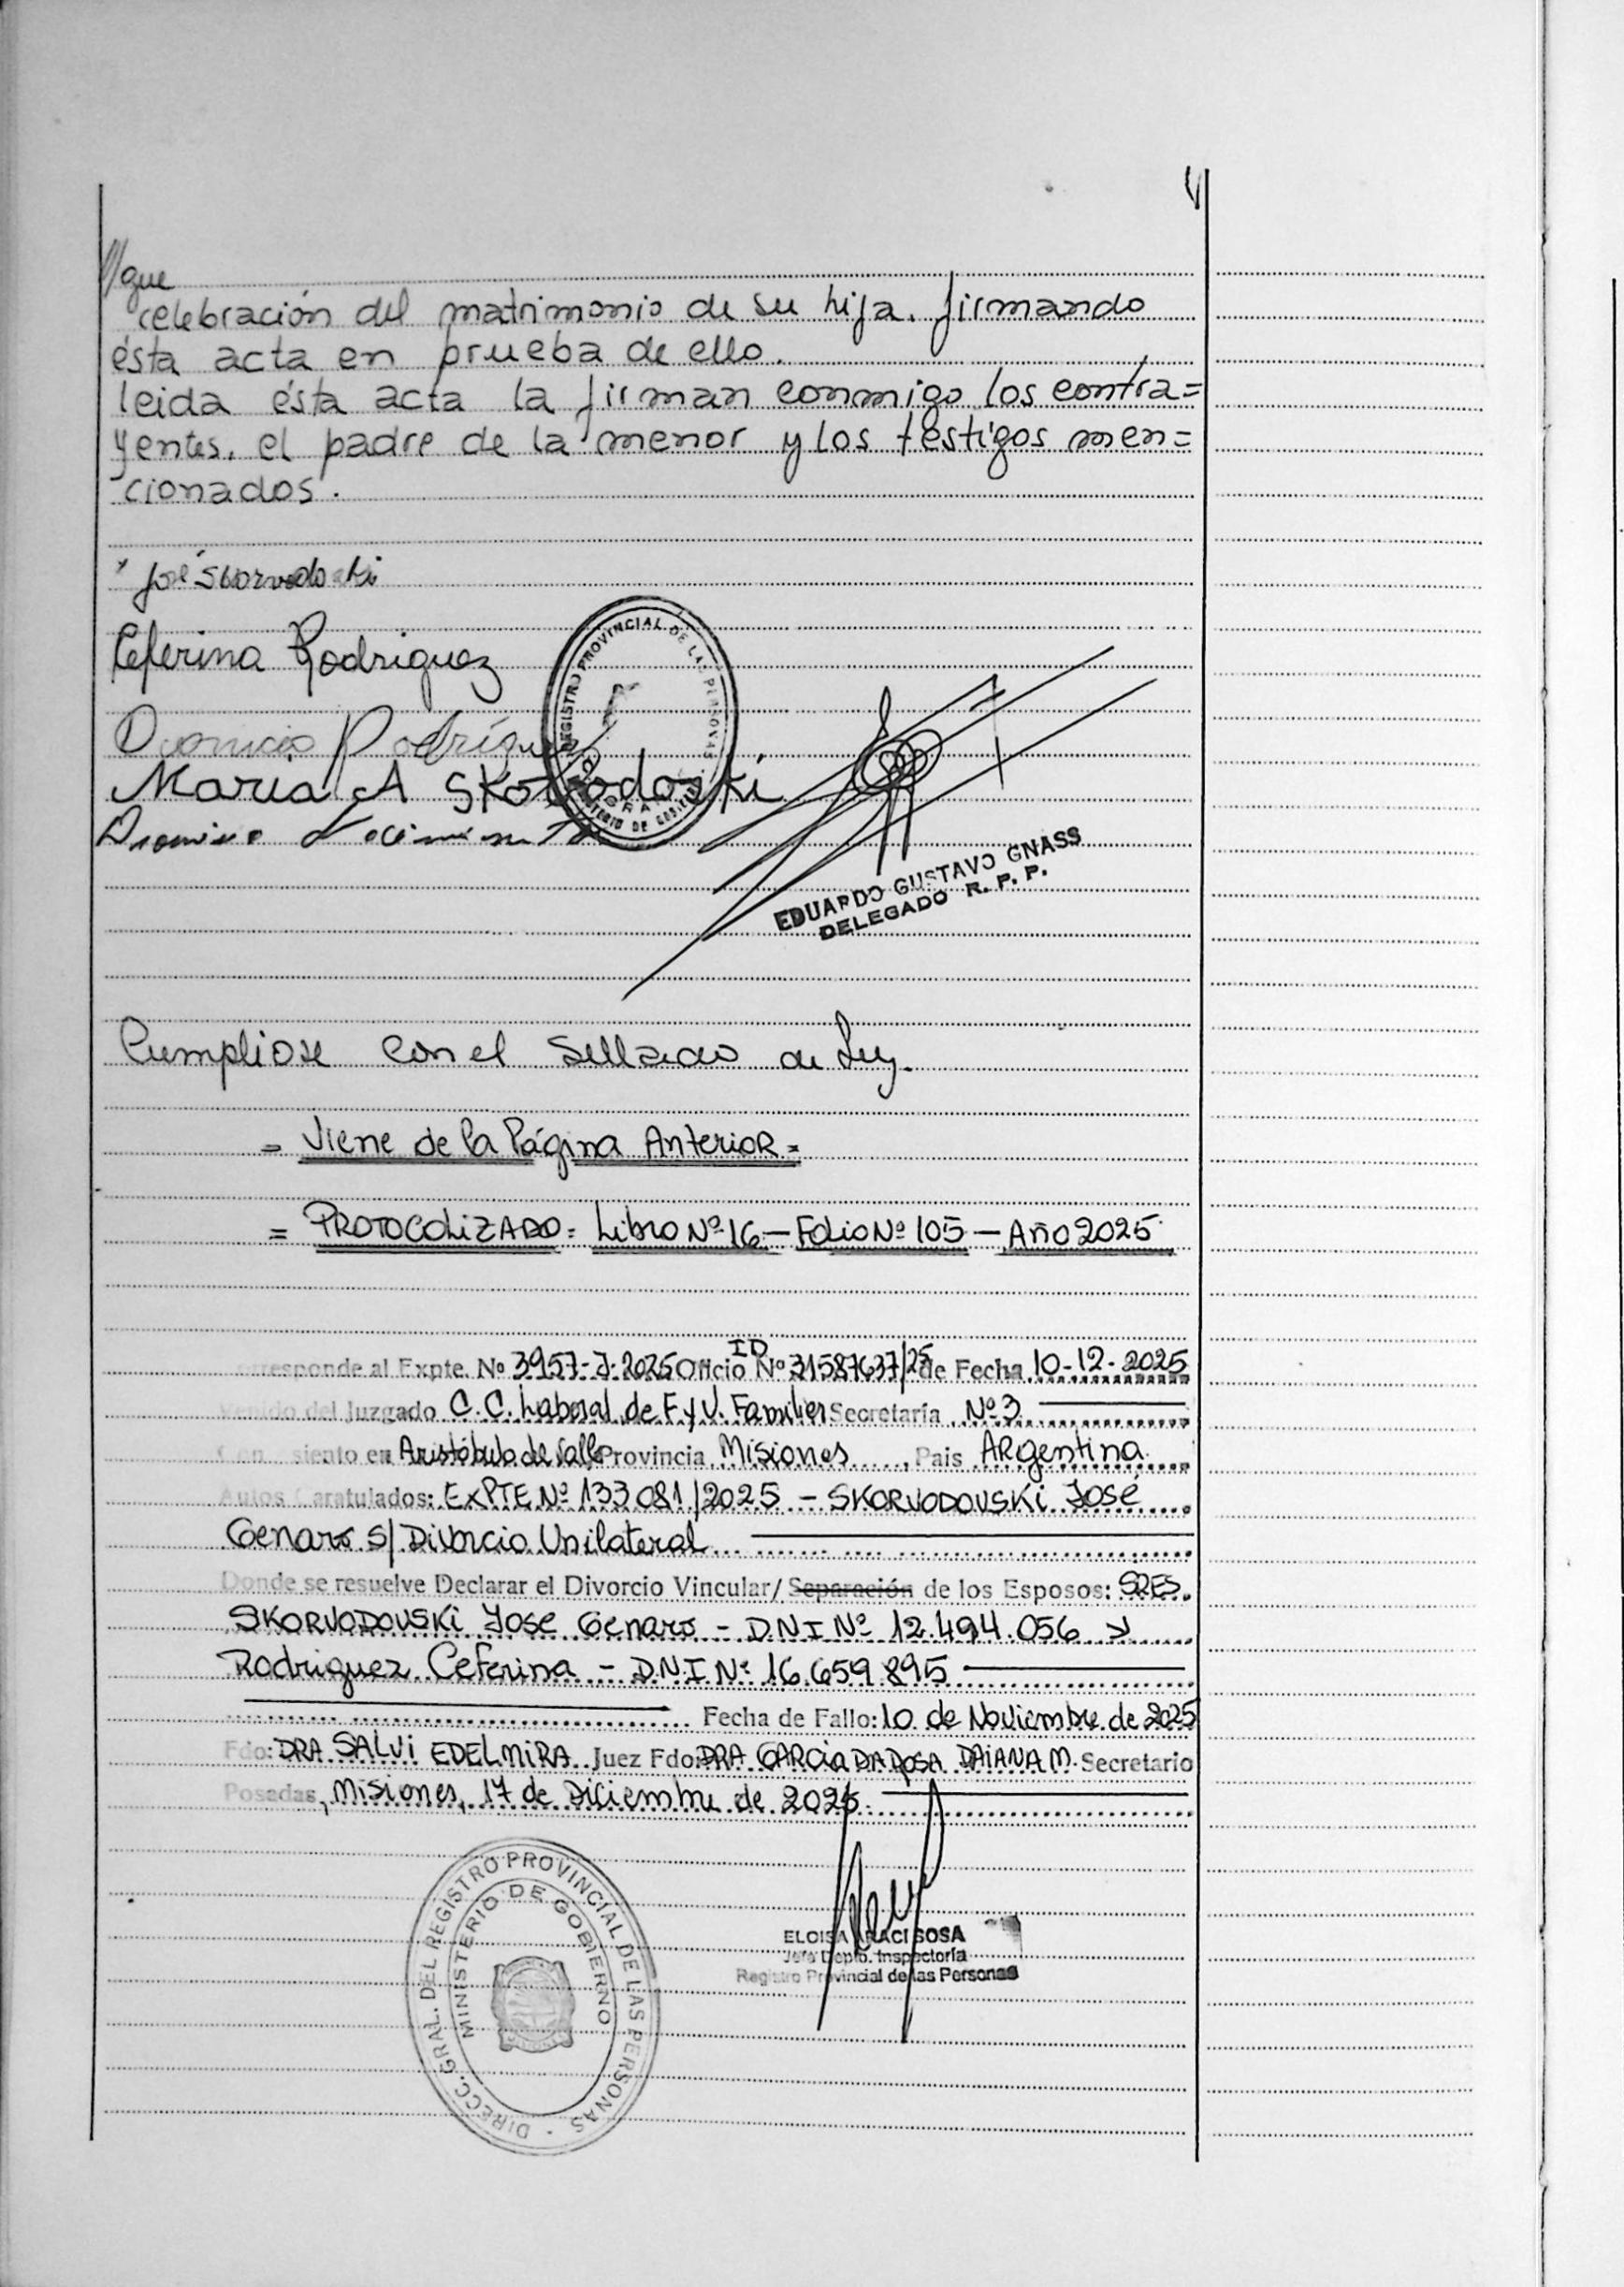 //que
celebración del matrimonio de su hija. firmando
ésta acta en prueba de ello.
leida ésta acta la firman conmigo los contra=
yentes, el padre de la menor y los testigos men=
cionados.
José
Ceferina Rodriguez
Rodríguez
REGISTRO PROVINCIAL DE LAS PERSONAS
Maria A
EDUARDO GUSTAVO GNASS
DELEGADO R. P. P.
Cumpliose con el Sellado de Ley.
= Viene de la Página Anterior =
= PROTOCOLIZADO = Libro Nº 16 - Folio Nº 105 - Año 2025
ID
orresponde al Expte. Nº 3957-J-2025 Oficio Nº 31587637/25 de Fecha 10-12-2025
Venido del Juzgado C.C. Laboral de F y V. Familiar Secretaría Nº 3
Con siento en Aristóbulo del Valle Provincia Misiones, Pais ARgentina
Autos Caratulados: EXPTE Nº 133081/2025 - SKORVODOVSKI José
Genaro S/ Divorcio Unilateral
Donde se resuelve Declarar el Divorcio Vincular/ Separación de los Esposos: SRES.
SKORVODOVSKI Jose Genaro - D.N.I Nº 12.494.056 y
Rodriguez Ceferina - D.N.I Nº 16.659.895
Fecha de Fallo: 10 de Noviembre de 2025
Fdo: DRA SALVI EDELMIRA Juez Fdo: DRA GARCIA DA ROSA DAIANA M. Secretario
Posadas, Misiones, 17 de Diciembre de 2025.
DIRECC. GRAL. DEL REGISTRO PROVINCIAL DE LAS PERSONAS
MINISTERIO DE GOBIERNO
ELOISA ARACI SOSA
Jefe Depto. Inspectoría
Registro Provincial de las Personas